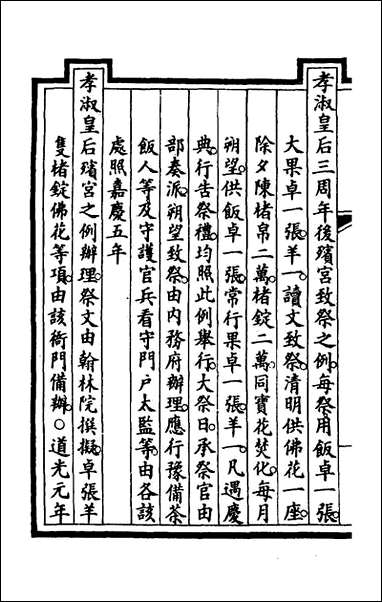 孝淑皇后三周年後殯宮致祭之例。每祭用飯卓一張。
大果卓一張。羊一。讀文致祭。清明供佛花一座。
除夕陳楮帛二萬。楮錠二萬。同寶花焚化。每月
朔望。供飯卓一張。常行果卓一張。羊一。凡遇慶
典。行告祭禮。均照此例舉行。大祭日。承祭官由
部奏派。朔望致祭。由內務府辦理。應行豫備茶
飯人等及守護官兵看守門戶太監等。由各該
處照嘉慶五年
孝淑皇后殯宮之例辦理。祭文由翰林院撰擬。卓張羊
隻楮錠佛花等項。由該衙門備辦。○道光元年